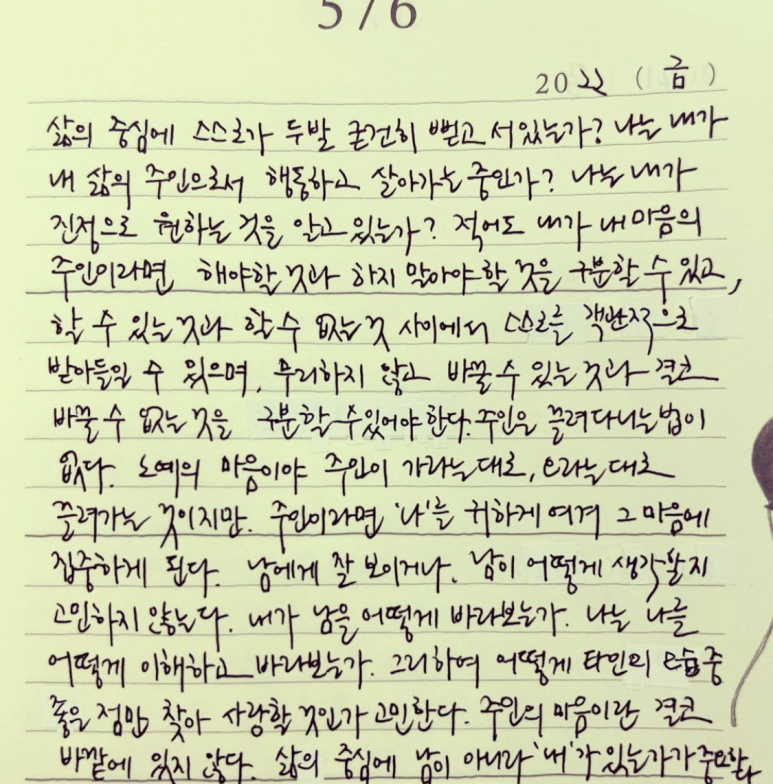 5 / 6
2022 (금)
삶의 중심에 스스로가 두발 굳건히 뻗고 서있는가? 나는 내가
내 삶의 주인으로서 행동하고 살아가는 중인가? 나는 내가
진정으로 원하는 것을 알고 있는가? 적어도 내가 내 마음의
주인이라면 해야할 것과 하지 말아야 할 것을 구분할 수 있고,
할 수 있는 것과 할 수 없는 것 사이에서 스스로를 객관적으로
받아들일 수 있으며, 무리하지 않고 바꿀 수 있는 것과 결코
바꿀 수 없는 것을 구분할 수 있어야 한다. 주인은 끌려다니는 법이
없다. 노예의 마음이야 주인이 가라는대로, 오라는대로
끌려가는 것이지만. 주인이라면 '나'를 귀하게 여겨 그 마음에
집중하게 된다. 남에게 잘 보이거나, 남이 어떻게 생각할지
고민하지 않는다. 내가 남을 어떻게 바라보는가. 나는 나를
어떻게 이해하고 바라보는가. 그리하여 어떻게 타인의 모습 중
좋은 점만 찾아 사랑할 것인가 고민한다. 주인의 마음이란 결코
바깥에 있지 않다. 삶의 중심에 남이 아니라 '내'가 있는가가 중요하다